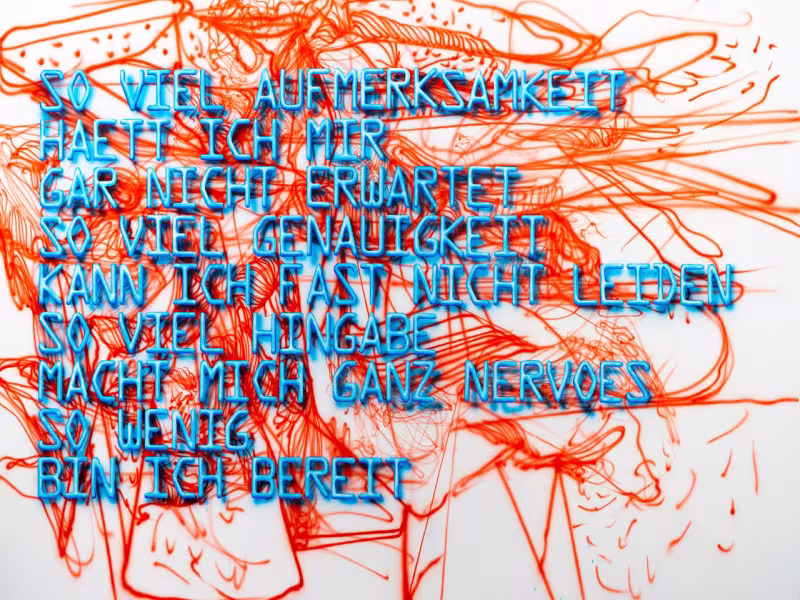 SO VIEL AUFMERKSAMKEIT
HAETT ICH MIR
GAR NICHT ERWARTET
SO VIEL GENAUIGKEIT
KANN ICH FAST NICHT LEIDEN
SO VIEL HINGABE
MACHT MICH GANZ NERVOES
SO WENIG
BIN ICH BEREIT